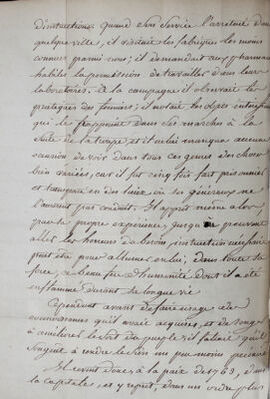 distractions. Quand son service l'arretait dans
quelque ville, il visitait les fabriques les moins
connues parmi nous; il demandait aux pharmaciens
habiles la permission de travailler dans leur
laboratoire. A la campagne il observait les
pratiques des fermiers; il notait les objets
qui le frappoient dans ses marches à la
suite de la troupe et il ne lui manqua aucune
occasion de voir dans tous ces genres des choses
bien variées, car il fut cinq fois fait prisonnier
et transporté en des lieux où ses généraux ne
l'auroient pas conduit. Il apprit même alors,
par sa propre expérience, jusqu'où peuvent
aller les horreurs du besoin, instruction
peut être pour allumer en lui, dans toute sa
force, ce beau feu d'humanité dont il a été
enflammé durant sa longue vie.
Cependant avant de faire usage des
connoissances qu'il avait acquises, et de songer
à améliorer le sort du peuple il falloit qu'il
songeat à rendre le sien un peu moins précaire
Il revint donc, à la paix de 1763, dans
la capitale, et y reprit, dans un ordre plus